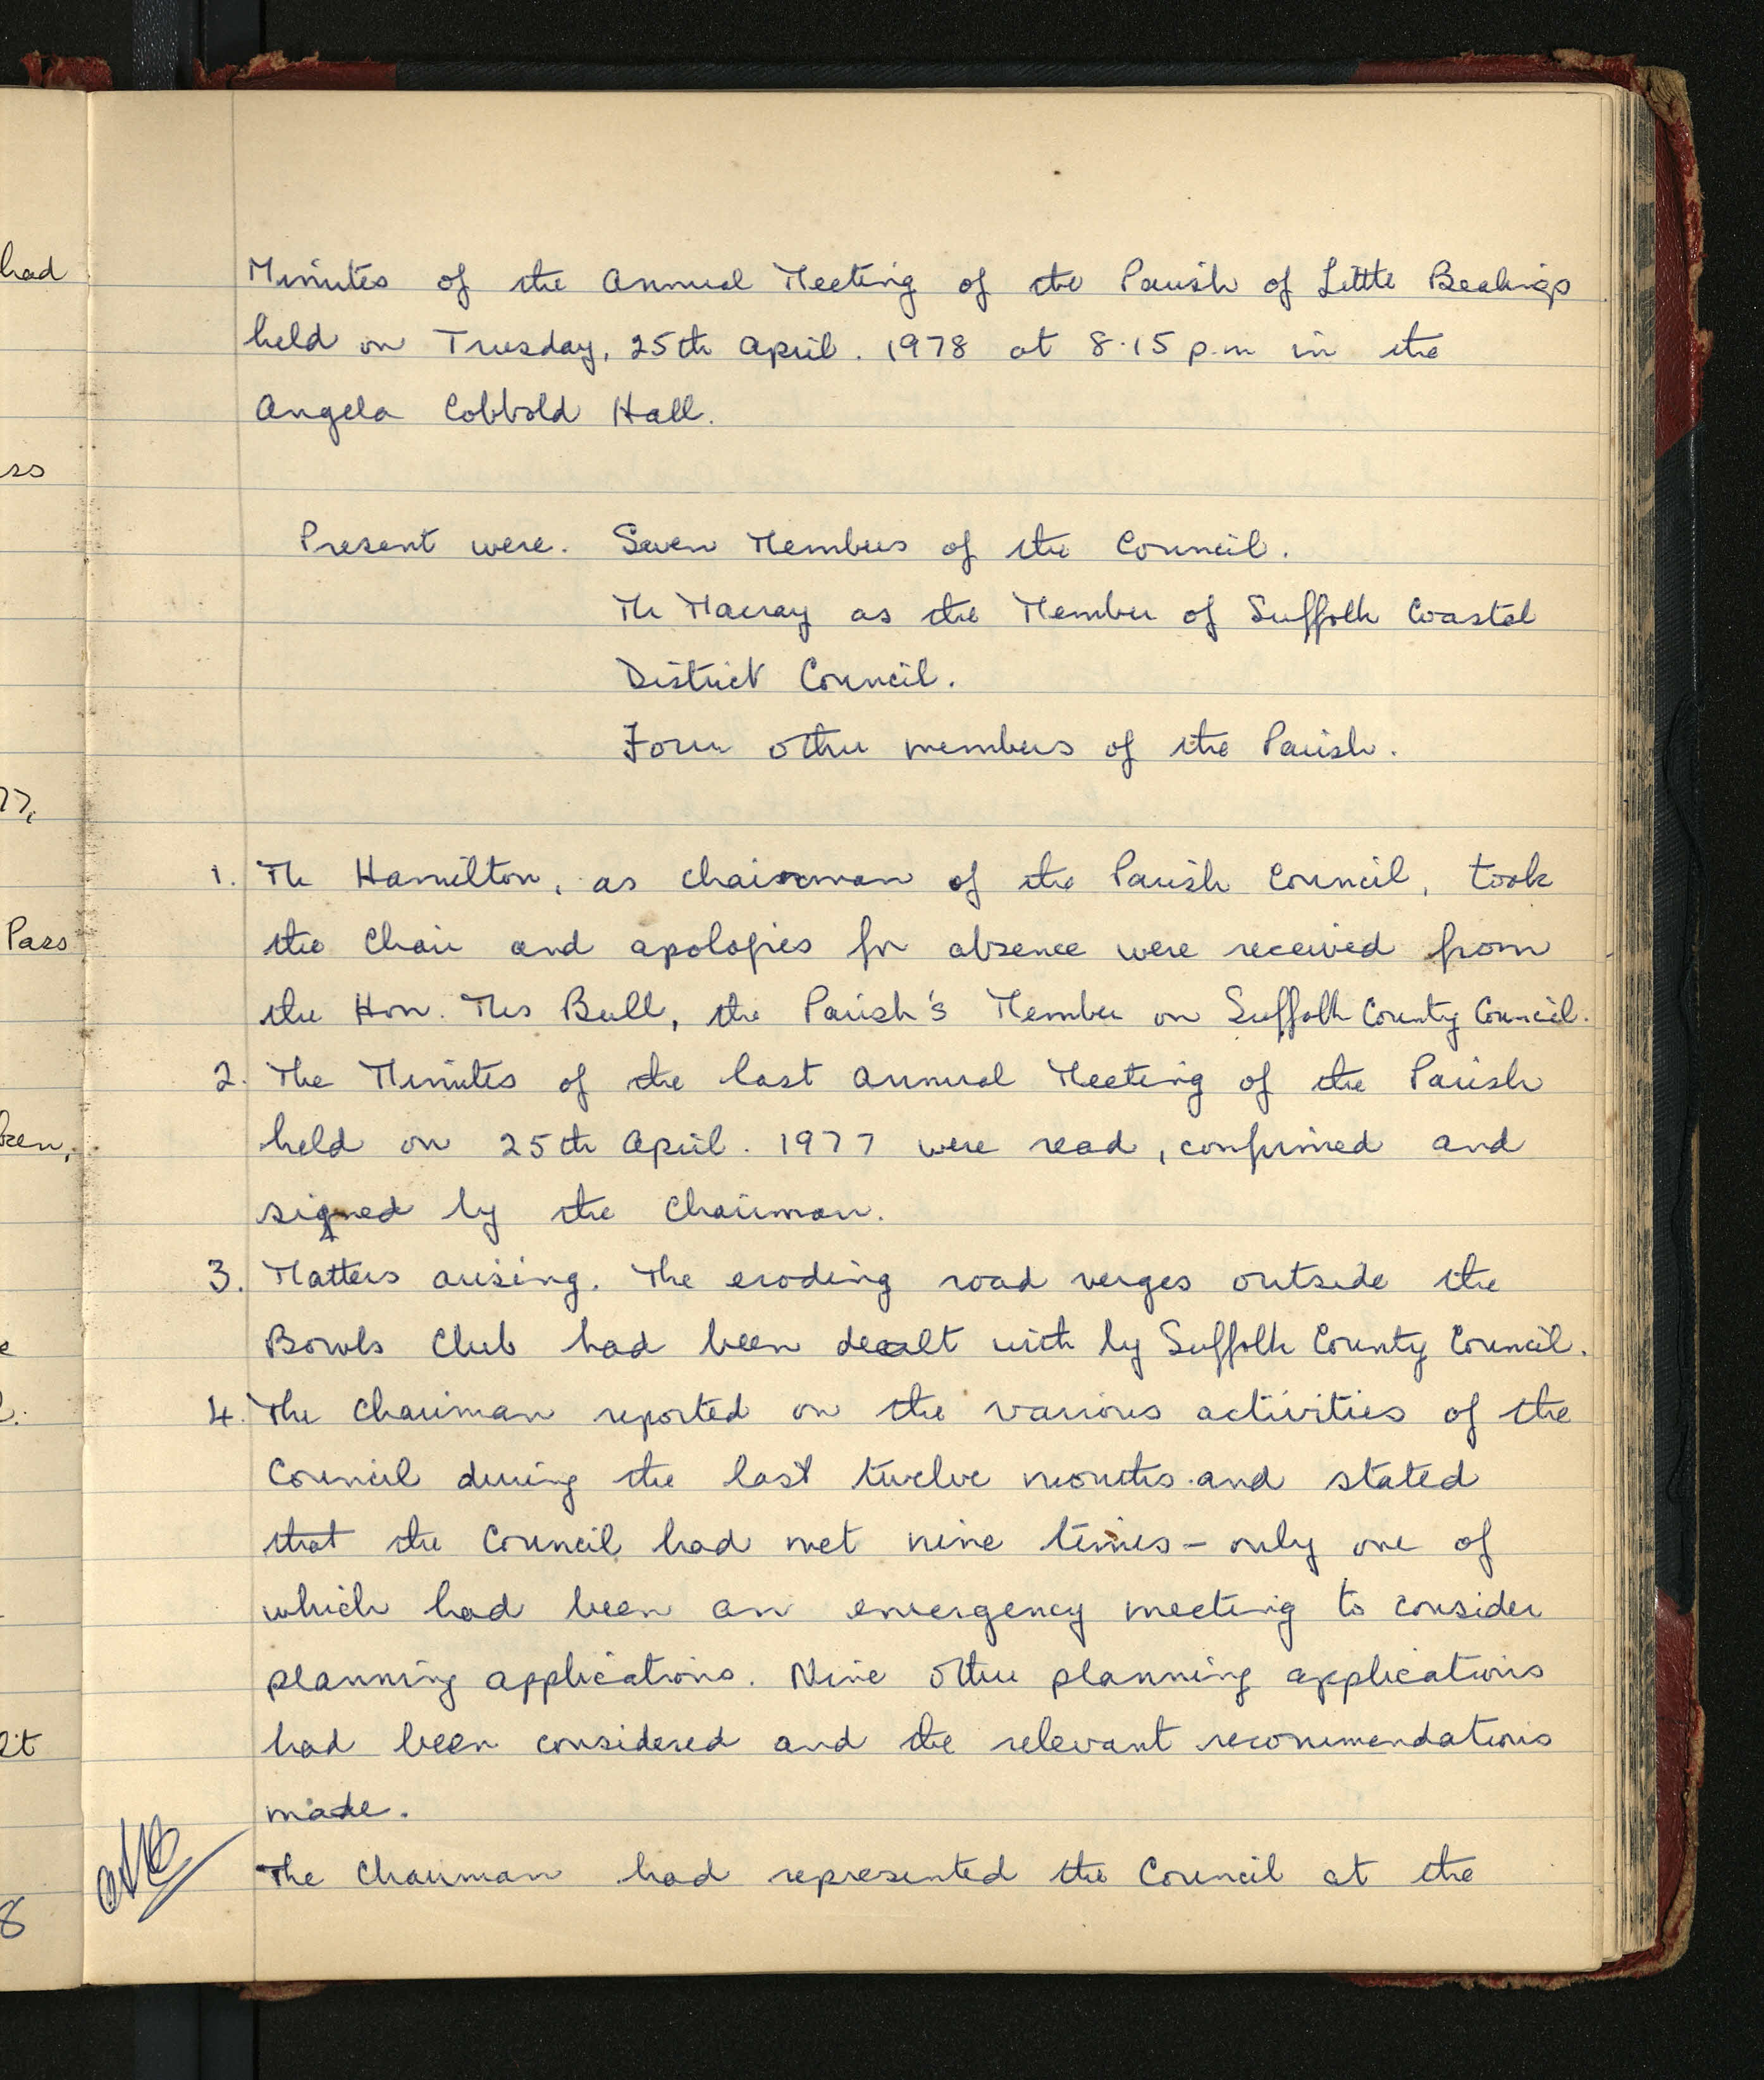 had
ss
77,
Pass
e
it
8
Minutes of the Annual Meeting of the Parish of Little Bealings
held on Tuesday, 25th April. 1978 at 8.15 p.m in the
Angela Cobbold Hall.
Present were. Seven Members of the Council.
Mr Macray as the Member of Suffolk Coastal
District Council.
Four other members of the Parish.
1. Mr Hamilton, as chairman of the Parish Council, took
the Chair and apologies for absence were received from
the Hon. Mrs Bull, the Parish's Member on Suffolk County Council.
2. The Minutes of the last Annual Meeting of the Parish
held on 25th April. 1977 were read, confirmed and
signed by the Chairman.
3. Matters arising. The eroding road verges outside the
Bowls Club had been dealt with by Suffolk County Council.
4. The Chairman reported on the various activities of the
Council during the last twelve months and stated
that the Council had met nine times - only one of
which had been an emergency meeting to consider
planning applications. Nine other planning applications
had been considered and the relevant recommendations
made.
The Chairman had represented the Council at the